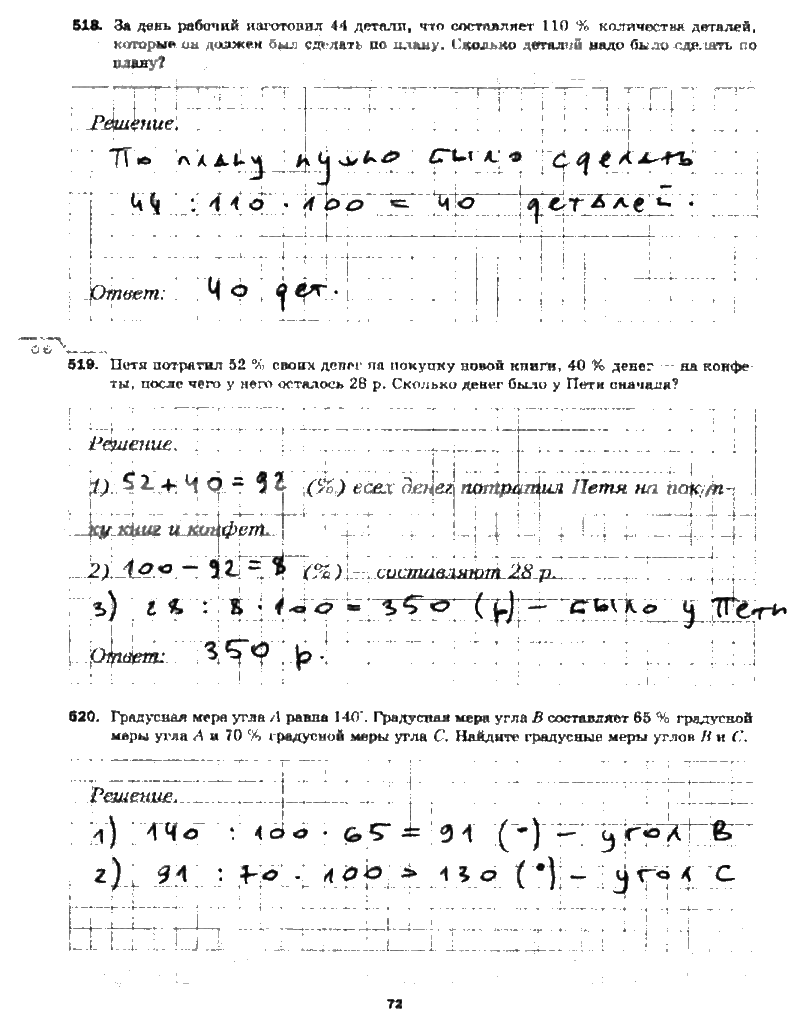 518. За день рабочий изготовил 44 детали, что составляет 110 % количества деталей,
которые он должен был сделать по плану. Сколько деталей надо было сделать по
плану?
Решение.
По плану нужно было сделать
44 : 110 · 100 = 40 деталей.
Ответ: 40 дет.
519. Петя потратил 52 % своих денег на покупку новой книги, 40 % денег — на конфе-
ты, после чего у него осталось 28 р. Сколько денег было у Пети сначала?
Решение.
1) 52 + 40 = 92 (%) всех денег потратил Петя на покуп-
ку книг и конфет.
2) 100 – 92 = 8 (%) – составляют 28 р.
3) 28 : 8 · 100 = 350 (р) – было у Пети
Ответ: 350 р.
520. Градусная мера угла A равна 140°. Градусная мера угла B составляет 65 % градусной
меры угла A и 70 % градусной меры угла C. Найдите градусные меры углов B и C.
Решение.
1) 140 : 100 · 65 = 91 (°) – угол B
2) 91 : 70 · 100 = 130 (°) – угол C
72